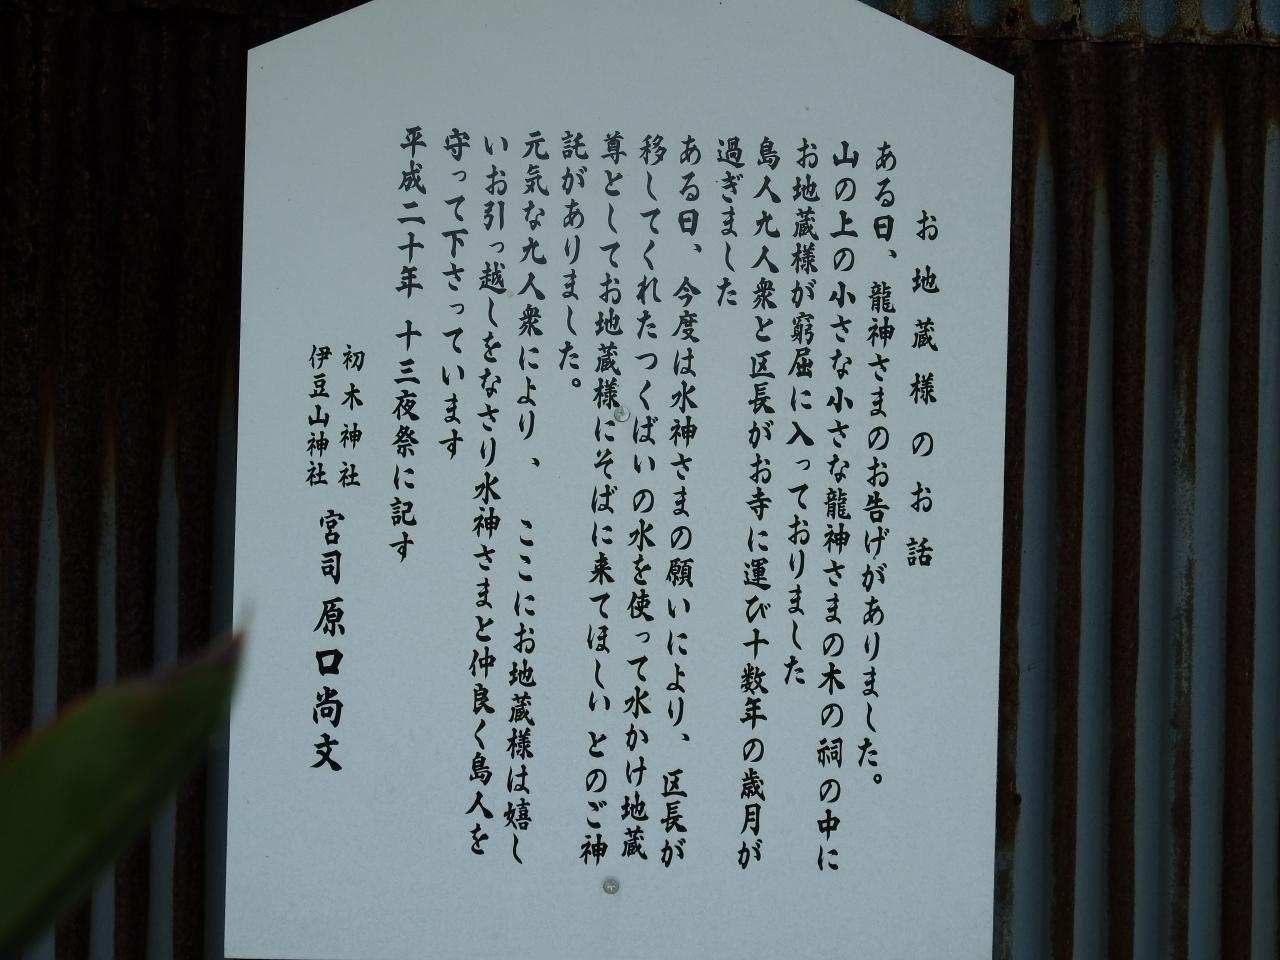 お地蔵様のお話
ある日、龍神さまのお告げがありました。
山の上の小さな小さな龍神さまの木の祠の中に
お地蔵様が窮屈に入っておりました
島人九人衆と区長がお寺に運び十数年の歳月が
過ぎました
ある日、今度は水神さまの願いにより、区長が
移してくれたつくばいの水を使って水かけ地蔵
尊としてお地蔵様にそばに来てほしいとのご神
託がありました。
元気な九人衆により、 ここにお地蔵様は嬉し
いお引っ越しをなさり水神さまと仲良く島人を
守って下さっています
平成二十年 十三夜祭に記す
初木神社
伊豆山神社
宮司 原口尚文